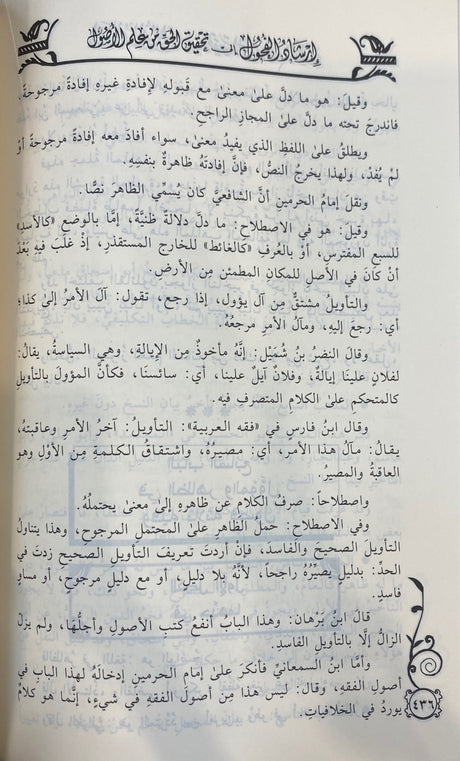 إرشاد الفحول إلى تحقيق الحق من علم الأصول
وقيلَ: هو ما دلَّ علىٰ معنىٰ مع قَبولهِ لإفادةِ غيرِهِ إفادةً مرجوحةً،
فاندرجَ تحته ما دلَّ علىٰ المجازِ الراجحِ.
ويطلقُ علىٰ اللفظِ الذي يفيدُ معنىٰ، سواء أفادَ معه إفادةً مرجوحةً أوْ
لمْ يُفدْ، ولهذا يخرجُ النصُّ، فإنَّ إفادتَهُ ظاهرةٌ بنفسِهِ.
ونقلَ إمامُ الحرمينِ أنَّ الشافعيَّ كان يُسمِّي الظاهرَ نصًّا.
وقيلَ: هو في الاصطلاحِ: ما دلَّ دلالةً ظنيَّةً، إمَّا بالوضعِ «كالأسدِ»
للسبعِ المفترسِ، أوْ بالعُرفِ «كالغائطِ» للخارجِ المستقذرِ، إذْ غلبَ فيهِ بَعْدَ
أنْ كانَ في الأصلِ للمكانِ المطمئنِ مِن الأرضِ.
والتأويلُ مشتقٌّ مِن آلَ يؤولُ، إذا رجعَ، تقول: آلَ الأمرُ إلىٰ كذا؛
أي: رجعَ إليهِ، ومآلُ الأمرِ مرجعُهُ.
وقالَ النضرُ بنُ شُمَيْلٍ: إنَّهُ مأخوذٌ مِن الإيالةِ، وهي السياسةُ، يقالُ:
لفلانٍ علينَا إيالةٌ، وفلان آيلٌ علينا، أي: سائسُنا، فكأنَّ المؤولَ بالتأويلِ
كالمتحكمِ علىٰ الكلامِ المتصرفِ فيه.
وقالَ ابنُ فارسٍ في «فقه العربية»: التأويلُ: آخرُ الأمرِ وعاقبتُه،
يقـالُ: مآلُ هـذا الأمرِ، أي: مصيرُهُ، واشتقـاقُ الكلمـةِ مِن الأوْلِ وهو
العاقبةُ والمصيرُ.
واصطلاحاً: صرفُ الكلامِ عن ظاهرِهِ إلىٰ معنىٰ يحتملُهُ.
وفي الاصطلاحِ: حملُ الظاهرِ علىٰ المحتملِ المرجوحِ، وهذا يتناولُ
التأويلَ الصحيحَ والفاسدَ، فإنْ أردتَ تعريفَ التأويلِ الصحيحِ زدتَ في
الحدِّ: بدليلٍ يصيِّرُهُ راجحاً، لأنَّهُ بلا دليلٍ، أو مع دليلٍ مرجوحٍ، أو مساوٍ
فاسدٌ.
قالَ ابنُ بَرْهان: وهذا البابُ أنفعُ كتبِ الأصولِ وأجلُّها، ولم يزلَّ
الزالُّ إلَّا بالتأويلِ الفاسدِ.
وأمَّا ابنُ السمعانيِّ فأنكرَ علىٰ إمامِ الحرمينِ إدخالَهُ لهذا البابِ في
أصولِ الفقهِ، وقالَ: ليس هذا مِن أصولِ الفقهِ في شيءٍ، إنَّما هو كلامٌ
يوردُ في الخلافياتِ.
٤٣٦